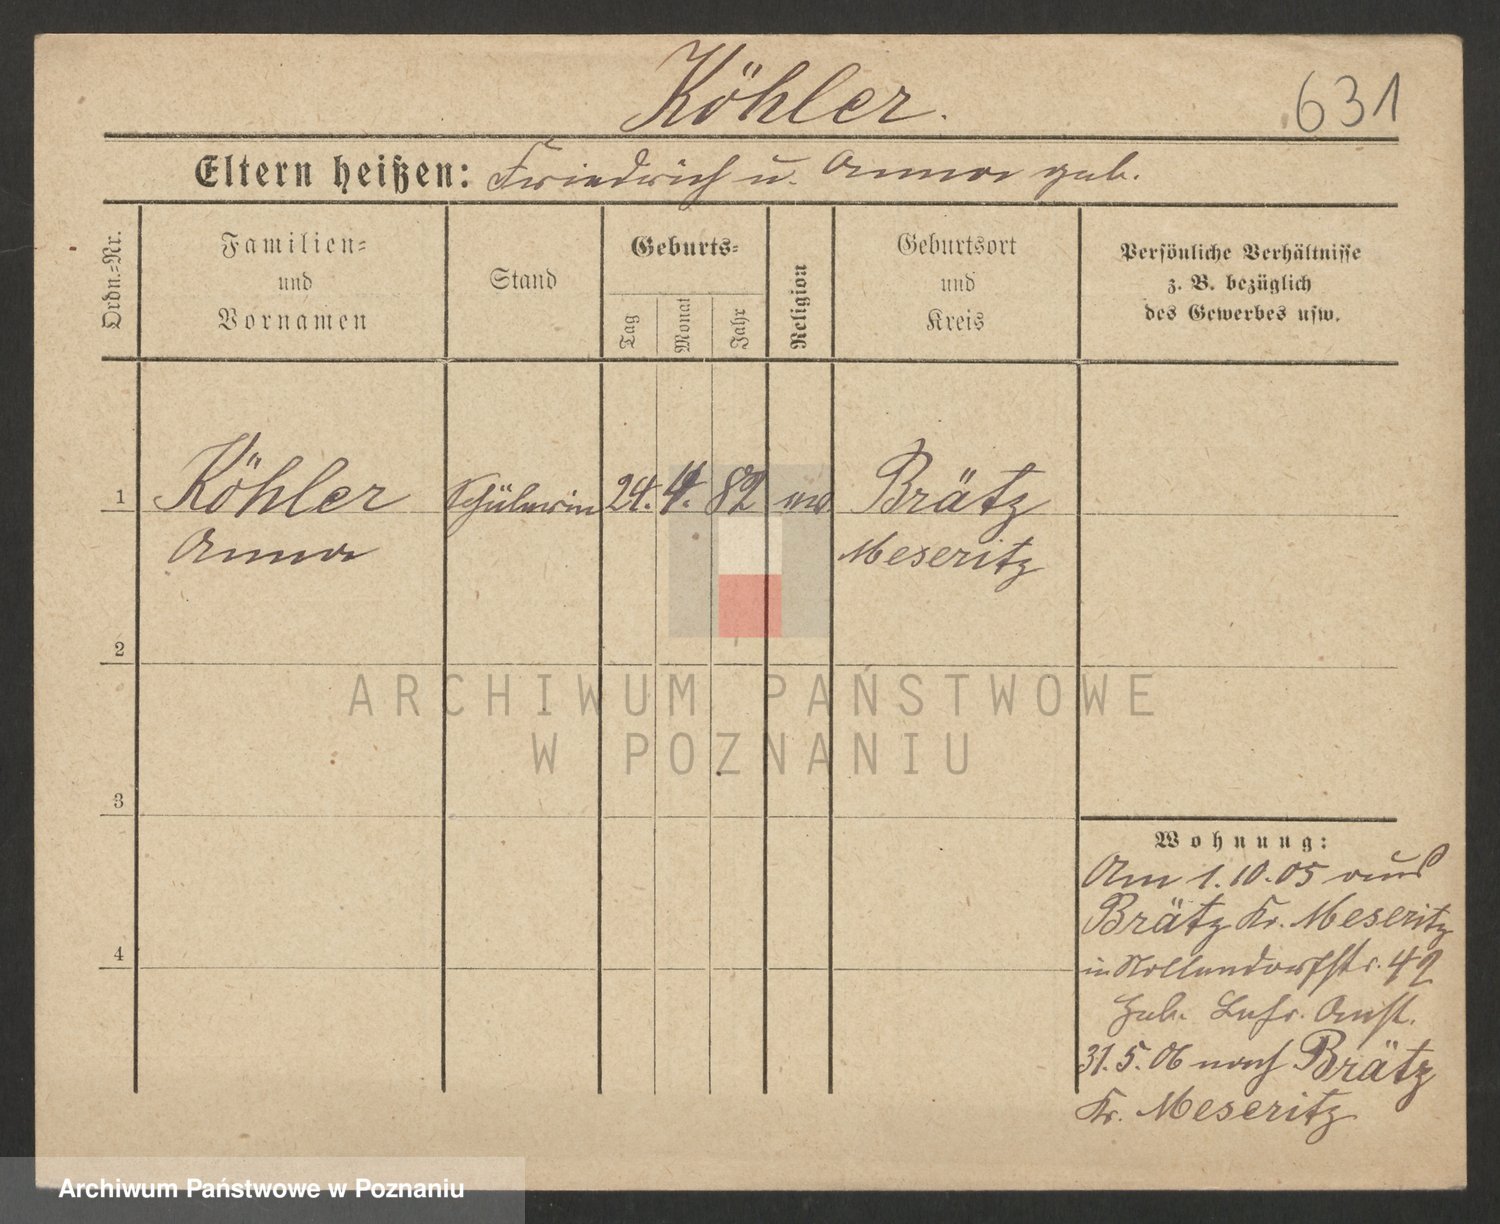 Köhler.
631
Eltern heißen: Friedrich u. Anna geb.
Ordn.=Nr.
Familien=
und
Vornamen
Stand
Geburts=
Tag
Monat
Jahr
Religion
Geburtsort
und
Kreis
Persönliche Verhältnisse
z. B. bezüglich
des Gewerbes usw.
1 Köhler Schülerin 24. 4. 82 ev Brätz
Anna Meseritz
2
3
4
ARCHIWUM PAŃSTWOWE
W POZNANIU
Wohnung:
Am 1.10.05 aus
Brätz Kr. Meseritz
in Nollendorfstr. 42
Geb. Lehr. Anst.
31.5.06 nach Brätz
Kr. Meseritz
Archiwum Państwowe w Poznaniu